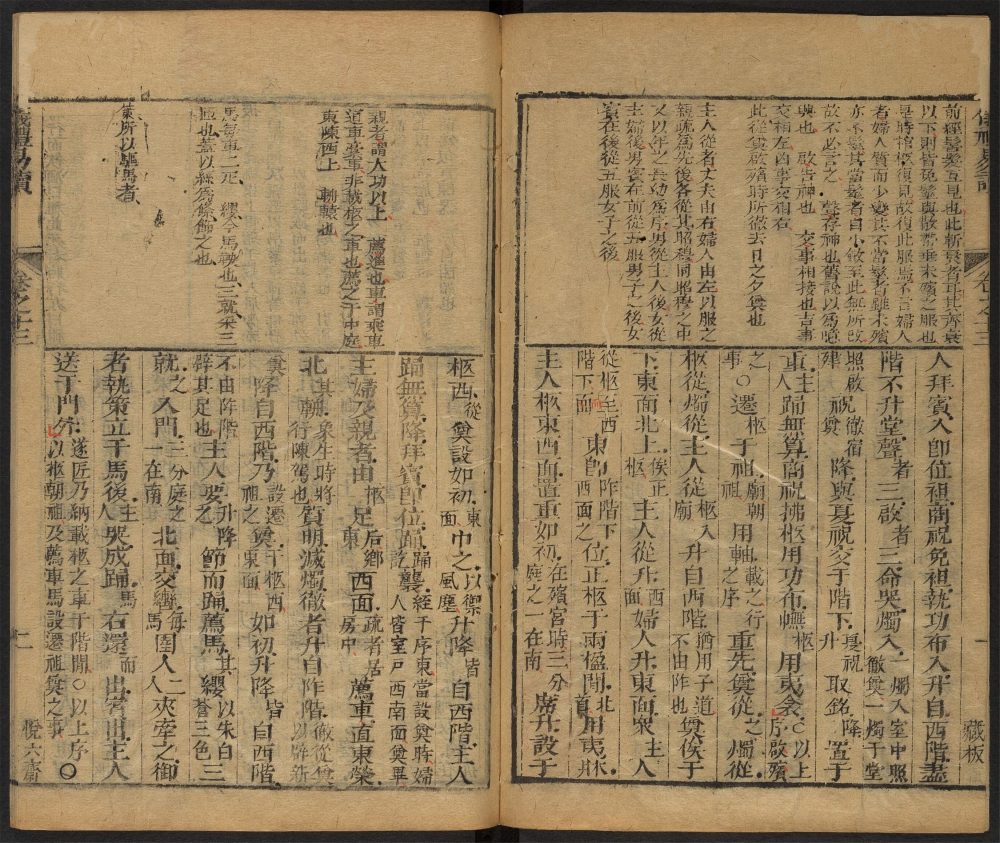 前經髽髮互見也此斬衰者耳其齊衰
以下則皆免髽與散帶垂未殯之服也
是時棺柩復見故復此服焉不言婦人
者婦人質而少變其不當髽者雖未殯
亦不髽其當髽者自小斂至此無所改
故不必言之 聲存神也舊說以爲噫
興也 啟告神也 交事相接也吉事
交相左凶事交相右
此從奠啟殯時所徹去日之夕奠也
主人從者丈夫由右婦人由左以服之
親疏爲先後各從其昭穆同昭穆之中
又以年之長幼爲序男從主人後女從
主婦後男賓在前從五服男子之後女
賓在後從五服女子之後
人拜賓入卽位袒商祝免袒執功布入升自西階盡
階不升堂聲者三啟者三命哭燭入一燭入室中照徹奠一燭于堂
照啟肂祝徹宿奠降與夏祝交于階下夏祝升取銘降置于
重主人踊無算商祝拂柩用功布幠柩用夷衾○以上序啟殯
之事○遷柩于祖廟朝祖用軸載之行之序重先奠從之燭從
柩從燭從主人從柩入廟升自西階猶用子道不由阼也奠俟于
下東面北上俟正柩主人從升西面婦人升東面衆主人
從柩至西階下西面東卽阼階下西面之位正柩于兩楹閒北首用夷牀
主人柩東西面置重如初在殯宮時三分庭之一在南席升設于
藏板
儀禮易讀
卷之十三
親者謂大功以上 薦進也車謂乘車
道車槀車非載柩之車也薦之于中庭
東陳西上 輈轅也
馬每車二疋 纓今馬鞅也三就采三
匝也蓋以絲爲絛飾之也
策所以驅馬者
柩西從奠設如初東面巾之以禦風塵升降皆自西階主人
踊無算降拜賓卽位踊襲踊襲絰于序東當設奠時婦人皆室戶西南面奠畢
主婦及親者由柩足後鄉東西面疏者居房中薦車直東榮
北其輈象生時將行陳駕也質明滅燭徹者升自阼階徹從奠以辟新
奠降自西階乃設遷祖之奠于柩西東面如初升降皆自西階
不由阼階辟其足也主人要之升降節而踊薦馬其纓以朱白蒼三色三
就之入門三分庭之一在南北面交轡每馬圉人二人夾牽之御
者執策立于馬後主人哭成踊馬右還而出賓出主人
送于門外遂匠乃納載柩之車于階閒○以上序以柩朝祖及薦車馬設遷祖奠之事○
儀禮易讀
卷之十三
悅六齋